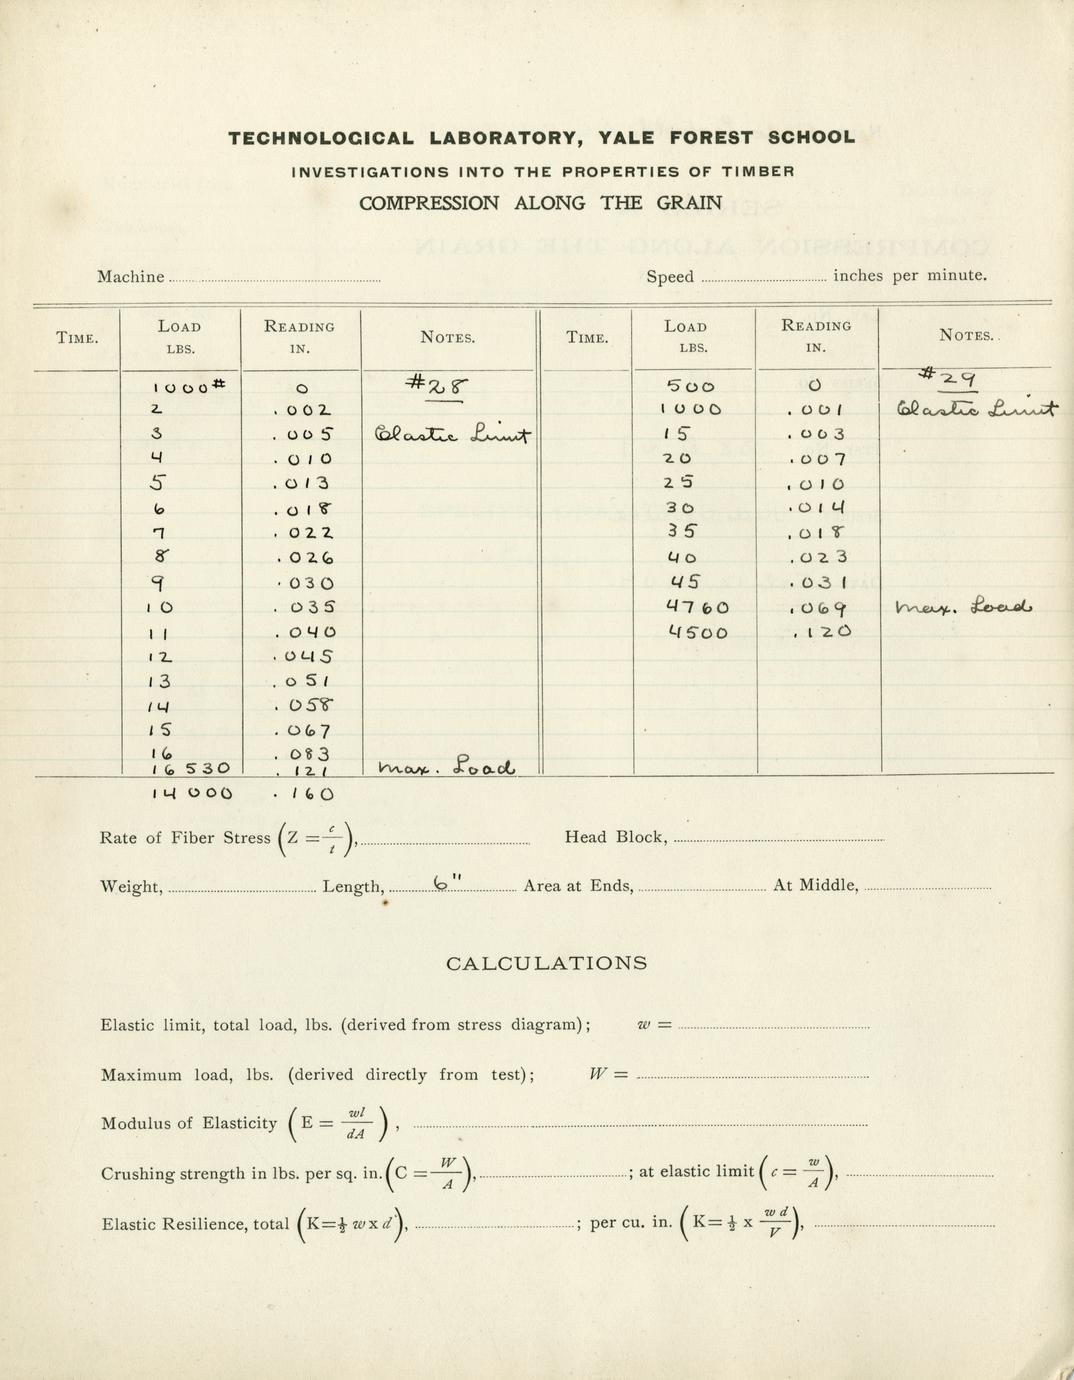 TECHNOLOGICAL LABORATORY, YALE FOREST SCHOOL
INVESTIGATIONS INTO THE PROPERTIES OF TIMBER
COMPRESSION ALONG THE GRAIN
Machine
Speed inches per minute.
TIME. LOAD LBS. READING IN. NOTES. TIME. LOAD LBS. READING IN. NOTES.
1000# 0 #28 500 0 #29
2 .002 1000 .001 Elastic Limit
3 .005 Elastic Limit 15 .003
4 .010 20 .007
5 .013 25 .010
6 .018 30 .014
7 .022 35 .018
8 .026 40 .023
9 .030 45 .031
10 .035 4760 .069 Max. Load
11 .040 4500 .120
12 .045
13 .051
14 .058
15 .067
16 .083
16 530 .121 Max. Load
14 000 .160
Rate of Fiber Stress (Z = c/t), Head Block,
Weight, Length, 6" Area at Ends, At Middle,
CALCULATIONS
Elastic limit, total load, lbs. (derived from stress diagram); w =
Maximum load, lbs. (derived directly from test); W =
Modulus of Elasticity (E = wl/dA),
Crushing strength in lbs. per sq. in. (C = W/A), ; at elastic limit (c = w/A),
Elastic Resilience, total (K=½ w x d), ; per cu. in. (K= ½ x w d/V),